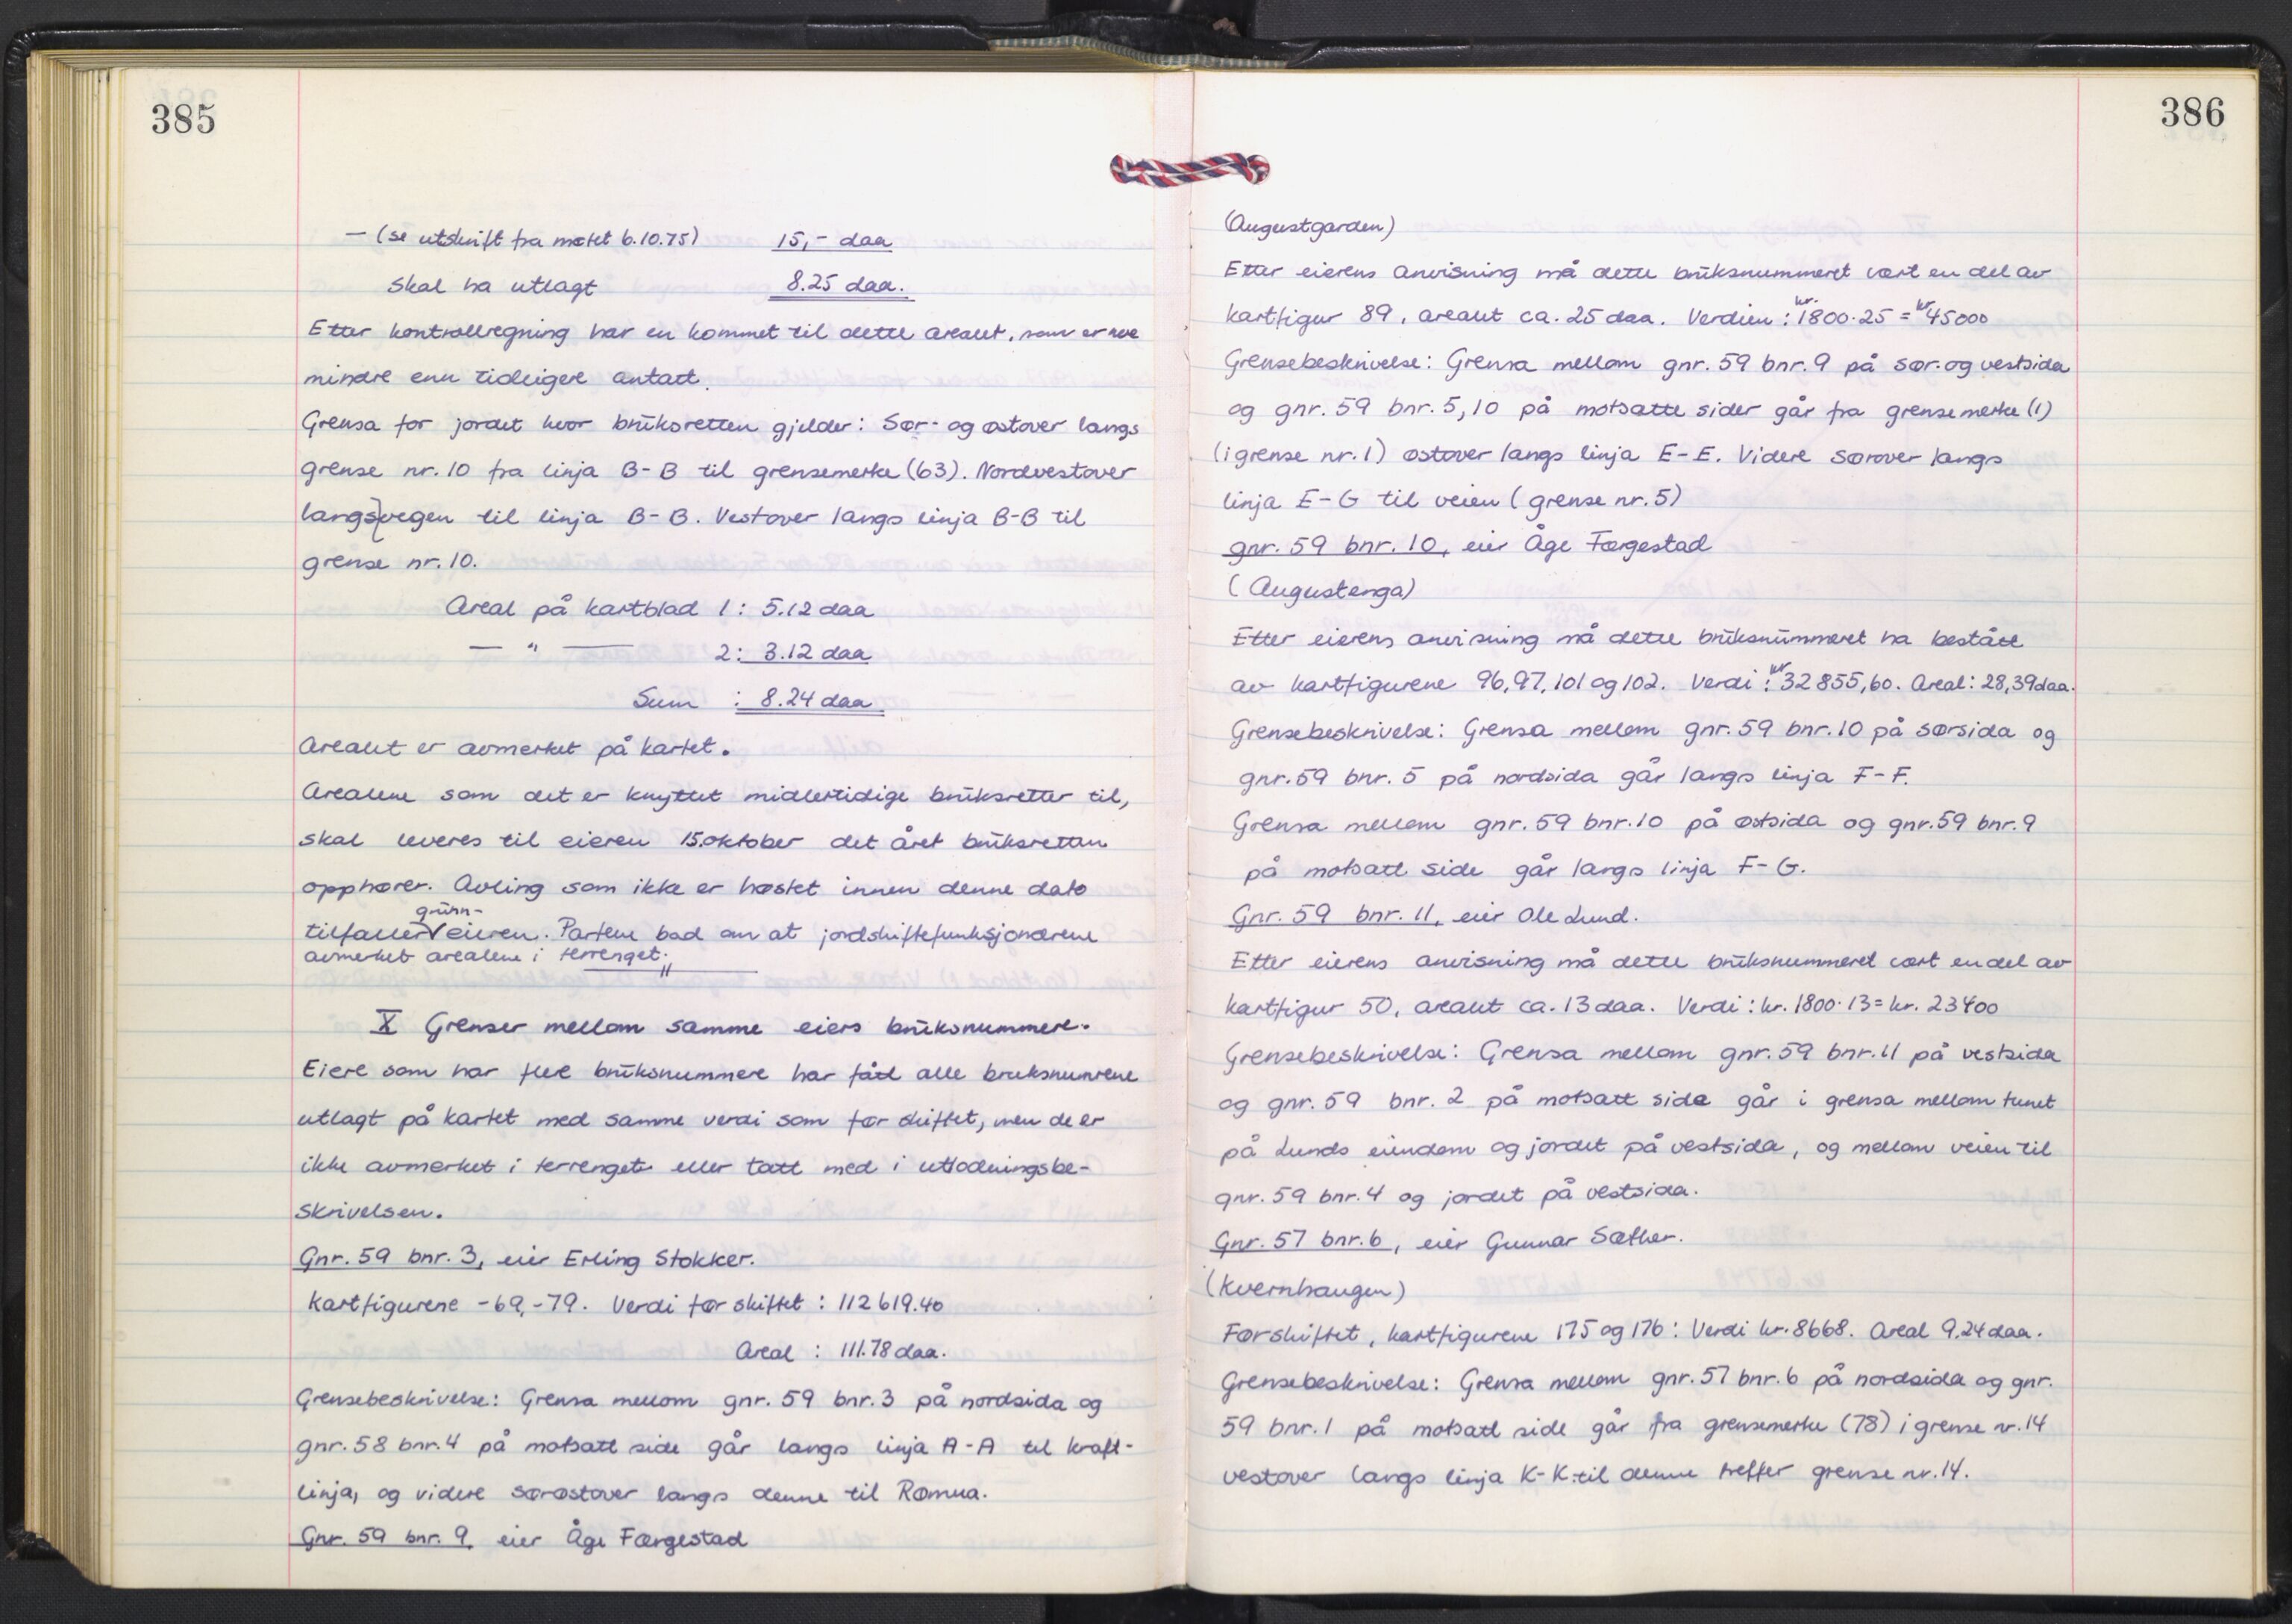 385
— (se utskrift fra møtet 6.10.75) 15,- daa
skal ha utlagt 8.25 daa.
Etter kontrollregning har en kommet til dette arealet, som er noe
mindre enn tidligere antatt.
Grensa for jordet hvor bruksretten gjelder: Sør- og østover langs
grense nr. 10 fra linja B-B til grensemerke (63). Nordvestover
langs vegen til linja B-B. Vestover langs linja B-B til
grense nr. 10.
Areal på kartblad 1: 5.12 daa
— " — 2: 3.12 daa
Sum : 8.24 daa
Arealet er avmerket på kartet.
Arealene som det er knyttet midlertidige bruksretter til,
skal leveres til eieren 15.oktober det året bruksretten
opphører. Avling som ikke er høstet innen denne dato
grunn-
tilfaller eieren. Partene bad om at jordskiftefunksjonærene
avmerket arealene i terrenget.
X Grenser mellom samme eiers bruksnummere.
Eiere som har flere bruksnummere har fått alle bruksnumrene
utlagt på kartet med samme verdi som før skiftet, men de er
ikke avmerket i terrenget eller tatt med i utlodningsbe-
skrivelsen.
Gnr. 59 bnr. 3, eier Erling Stokker.
Kartfigurene -69,-79. Verdi før skiftet : 112619.40
Areal : 111.78 daa.
Grensebeskrivelse: Grensa mellom gnr. 59 bnr. 3 på nordsida og
gnr. 58 bnr. 4 på motsatt side går langs linja A-A til kraft-
linja, og videre sørøstover langs denne til Rømua.
Gnr. 59 bnr. 9, eier Åge Færgestad
386
(Augustgarden)
Etter eierens anvisning må dette bruksnummeret vært en del av
kartfigur 89, arealet ca. 25 daa. Verdien : kr. 1800·25 = kr 45000
Grensebeskrivelse: Grensa mellom gnr. 59 bnr. 9 på sør- og vestsida
og gnr. 59 bnr. 5,10 på motsatte sider går fra grensemerke (1)
(i grense nr. 1) østover langs linja E-E. Videre sørover langs
linja E-G til veien (grense nr. 5)
gnr. 59 bnr. 10, eier Åge Færgestad
(Augustenga)
Etter eierens anvisning må dette bruksnummeret ha bestått
av kartfigurene 96,97,101 og 102. Verdi : kr 32855,60. Areal: 28,39 daa.
Grensebeskrivelse: Grensa mellom gnr. 59 bnr. 10 på sørsida og
gnr. 59 bnr. 5 på nordsida går langs linja F-F.
Grensa mellom gnr. 59 bnr. 10 på østsida og gnr. 59 bnr. 9
på motsatt side går langs linja F-G.
Gnr. 59 bnr. 11, eier Ole Lund.
Etter eierens anvisning må dette bruksnummeret vært en del av
kartfigur 50, arealet ca. 13 daa. Verdi : kr. 1800·13 = kr. 23400
Grensebeskrivelse: Grensa mellom gnr. 59 bnr. 11 på vestsida
og gnr. 59 bnr. 2 på motsatt side går i grensa mellom tunet
på Lunds eiendom og jordet på vestsida, og mellom veien til
gnr. 59 bnr. 4 og jordet på vestsida.
Gnr. 57 bnr. 6, eier Gunnar Sæther.
(Kvernhaugen)
Før skiftet, kartfigurene 175 og 176 : Verdi kr. 8668. Areal 9.24 daa.
Grensebeskrivelse: Grensa mellom gnr. 57 bnr. 6 på nordsida og gnr.
59 bnr. 1 på motsatt side går fra grensemerke (78) i grense nr. 14
vestover langs linja K-K til denne treffer grense nr. 14.